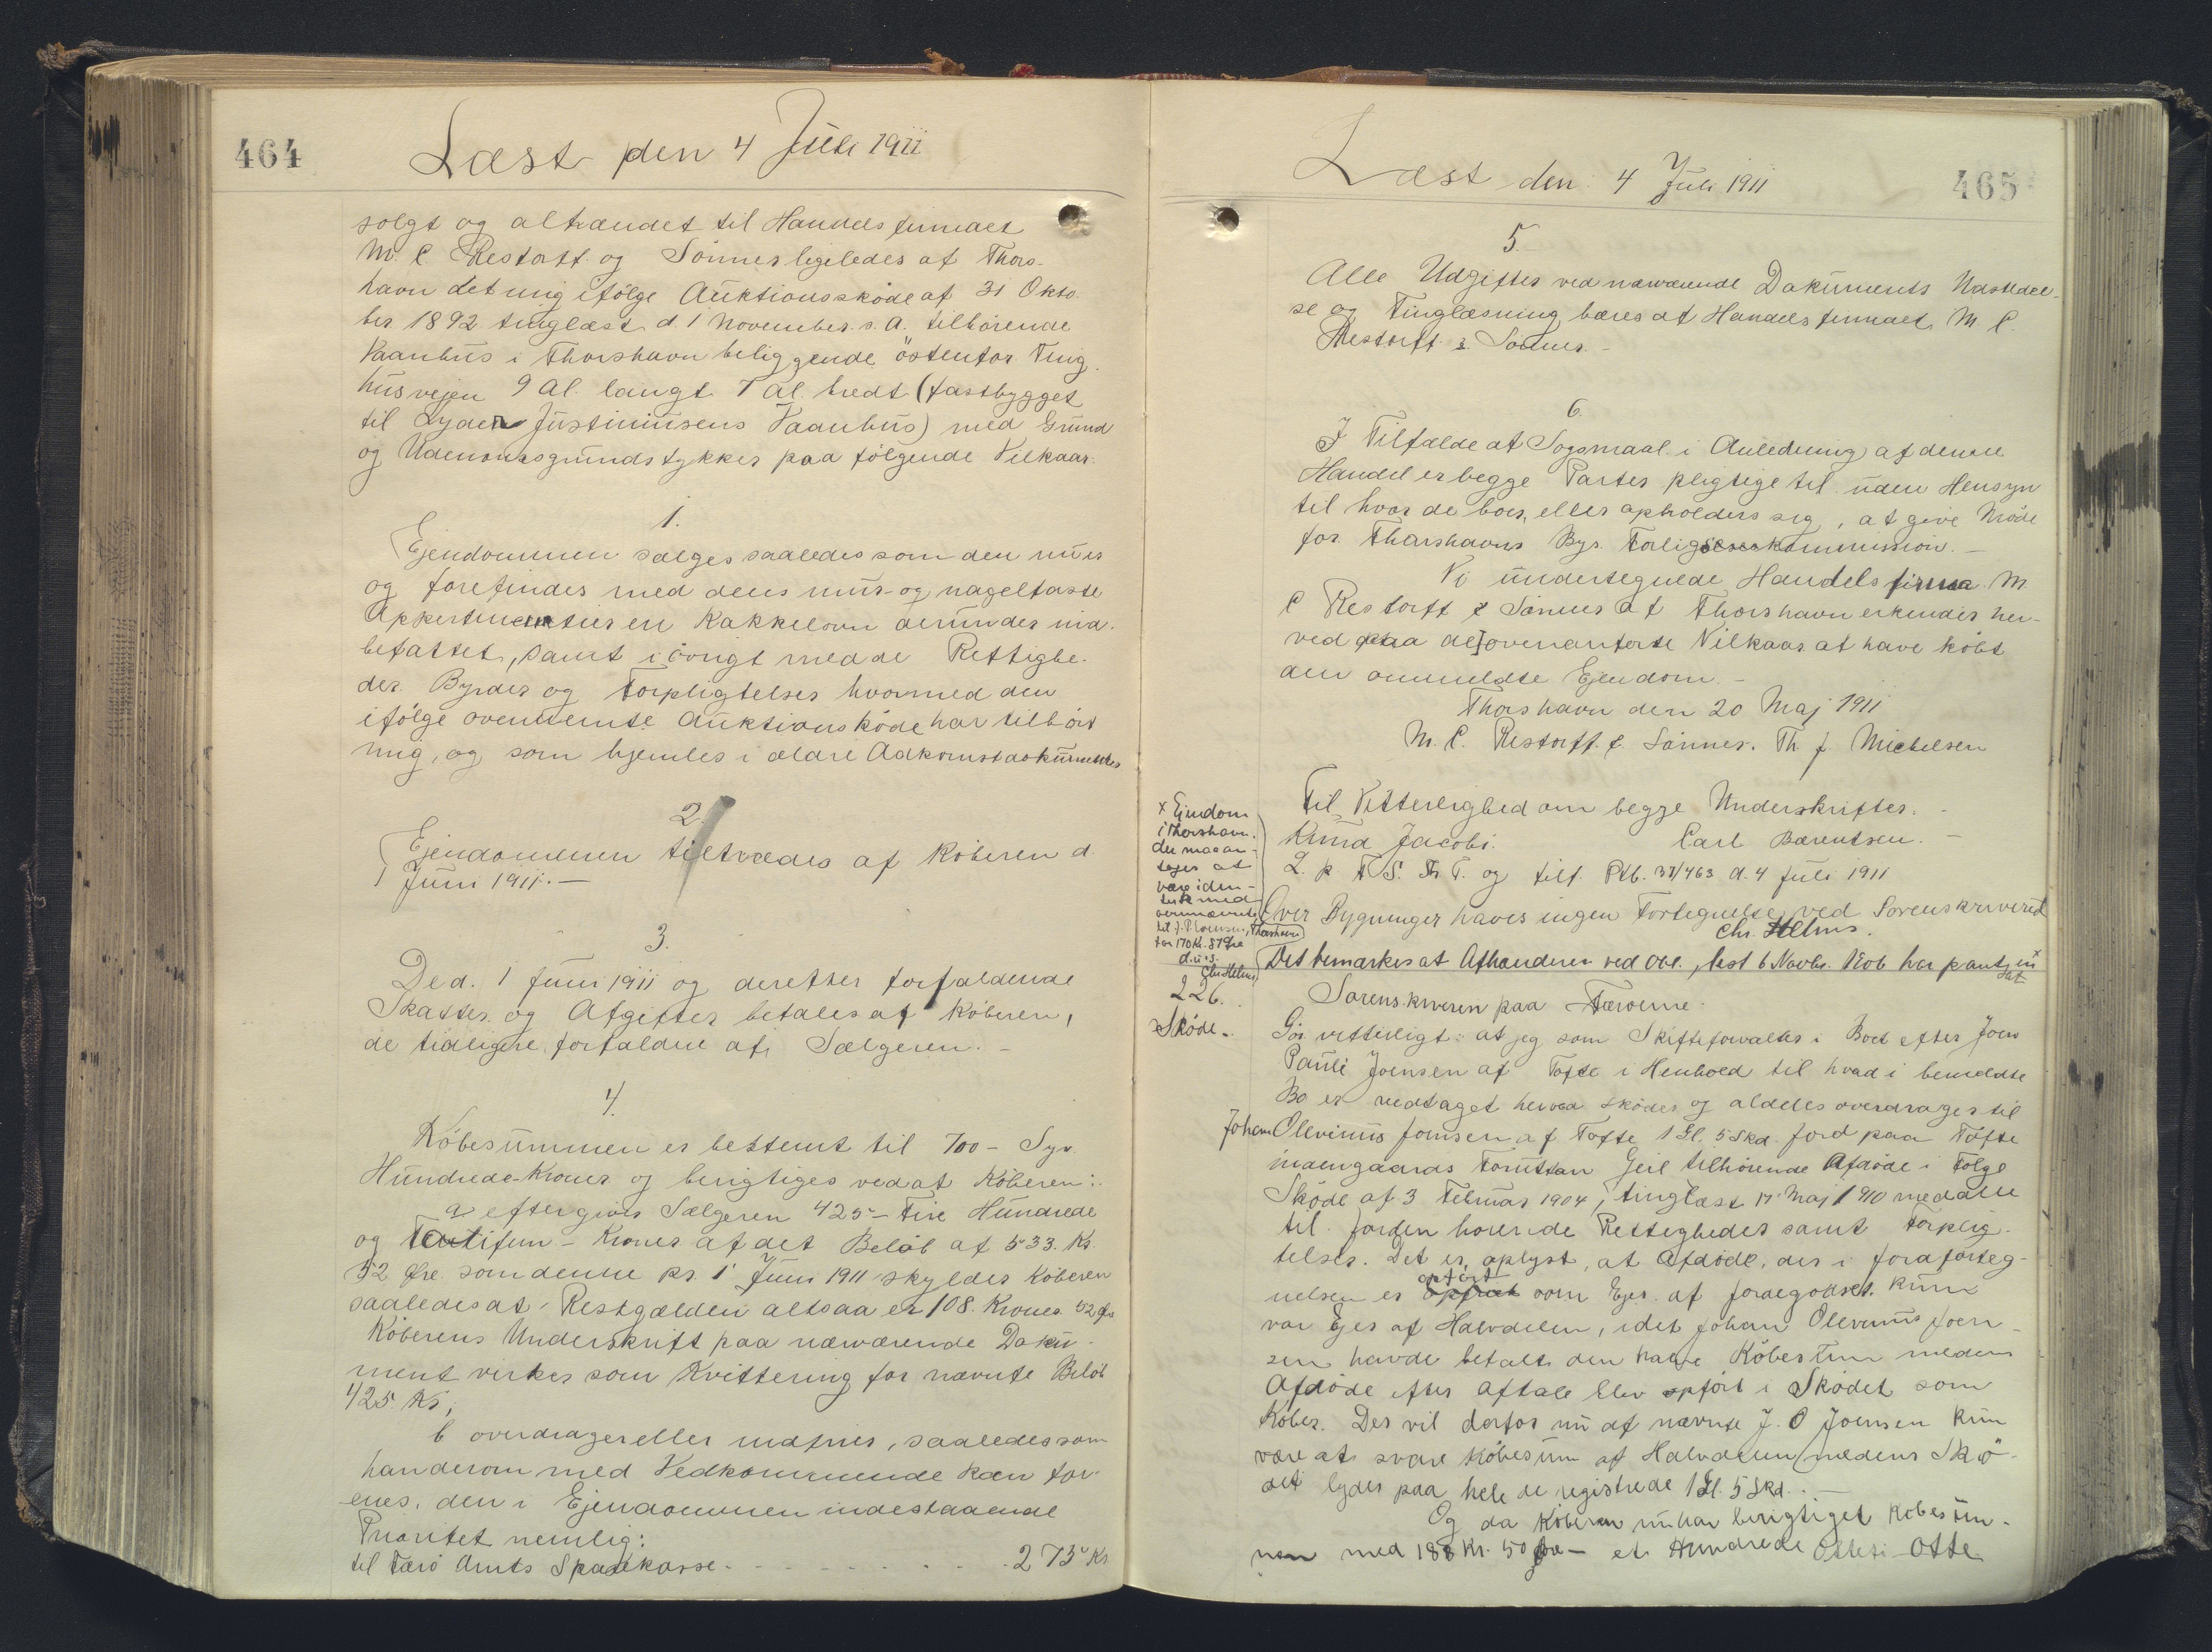 464
Læst den 4 Juli 1911
solgt og afhændet til Handelsfirmaet
M. C. Restorff og Sönner ligeledes af Thors-
havn det mig ifölge Auktionsskóde af 31 Okto-
ber 1892 tinglæst d. 1 November s. A. tilhörende
Vaanhus i Thorshavn beliggende östenfor Ting-
husvejen 9 Al. langt 7 Al. bredt (fastbygget
til Justinusens Vaanhus) med Grund
og Udenomsgrundstykker paa fölgende Vilkaar.
1.
Ejendommen sælges saaledes som den nu er
og forefindes med dens mur- og nagelfaste
Appertinentier en Kakkelovn derunder ind-
befattet, samt i övrigt med de Rettighe-
der Byrder og Forpligtelser hvormed den
ifölge ovennævnte Auktionsskóde har tilhört
mig, og som hjemles i ældre Adkomstdokumenter
2.
Ejendommen tiltrædes af Köberen d.
1 Juni 1911. —
3.
De d. 1 Juni 1911 og derefter forfaldende
Skatter og Afgifter betales af Köberen,
de tidligere forfaldne af Sælgeren. –
4.
Köbesummen er bestemt til 700 – Syv
Hundrede – Kroner og berigtiges ved at Köberen:
a eftergiver Sælgeren 425 – Fire Hundrede
og Femtifem – Kroner af det Beløb af 533 Kr.
52 Øre som denne pr. 1 Juni 1911 skylder Köberen
saaledes at Restgælden altsaa er 108 Kroner 52 Øre
Köberens Underskrift paa nærværende Doku-
ment virker som Kvittering for nævnte Beløb
425 Kr,
b overdrager eller indfrier, saaledes som
han derom med Vedkommende kan for-
enes, den i Ejendommen indestaaende
Prioritet nemlig:
til Færö Amts Sparekasse - - - - - - 275 Kr
465
Læst den 4 Juli 1911
5.
Alle Udgifter ved nærværende Dokuments Udstedel-
se og Tinglæsning bæres af Handelsfirmaet M. C.
Restorff & Sönner. –
6.
I Tilfælde af Sogsmaal i Anledning af denne
Handel er begge Parter pligtige til uden Hensyn
til hvor de boer, eller opholder sig, at give Möde
for Thorshavns Bys Forligskommission. –
Vi undertegnede Handelsfirma M.
C Restorff & Sönner af Thorshavn erkender her-
ved paa de ovenanførte Vilkaar at have köbt
den ommeldte Ejendom. –
Thorshavn den 20 Maj 1911
M. C. Restorff & Sönner. Th. J. Michelsen
Til Vitterlighed om begge Underskrifter. –
Knud Jacobi. Carl Bærentsen. –
L. p. F. S. Th. T. og tilf. Ptb. 37/463 d. 4 Juli 1911
Over Bygninger haves ingen Fortegnelse ved Sorenskriveriet
Chr. Helms.
Det bemærkes at Afhænderen ved Obl., læst 6 Novbr. 1906 har pantsat en x
x Ejendom
i Thorshavn
der maa an-
tages at
være iden-
tisk med
ovennævnte
til J. P. Thorshavn
for 170 Kr. 87 Øre
d. u. s.
Chr Helms
226.
Sköde.
Sorenskriveren paa Færøerne
Gör vitterligt: at jeg som Skifteforvalter i Boet efter Joen
Pauli Joensen af Tofte i Henhold til hvad i bemeldte
Bo er vedtaget herved sköder og aldeles overdrager til
Johan Olevinus Joensen af Tofte 1 Gl. 5 Skd. Jord paa Tofte
indengaards Foruttan Geil tilhörende Afdöde i Følge
Sköde af 3 Februar 1904, tinglæst 17 Maj 1910 med alle
til Jorden hörende Rettigheder samt Forplig-
telser. Det er oplyst, at Afdöde, der i Jordforteg-
nelsen er opført som Ejer af Jordegodset kun
var Ejer af Halvdelen, idet Johan Olevinus Joen-
sen havde betalt den halve Köbesum medens
Afdöde efter Aftale blev opfört i Sködet som
Köber. Der vil derfor nu af nævnte J. O Joensen kun
være at svare Köbesum af Halvdelen medens Skö-
det lyder paa hele de registrede 1 Gl. 5 Skd. –
Og da Köberen nu har berigtiget Köbesum-
men med 188 Kr. 50 Øre – et Hundrede Otteti Otte